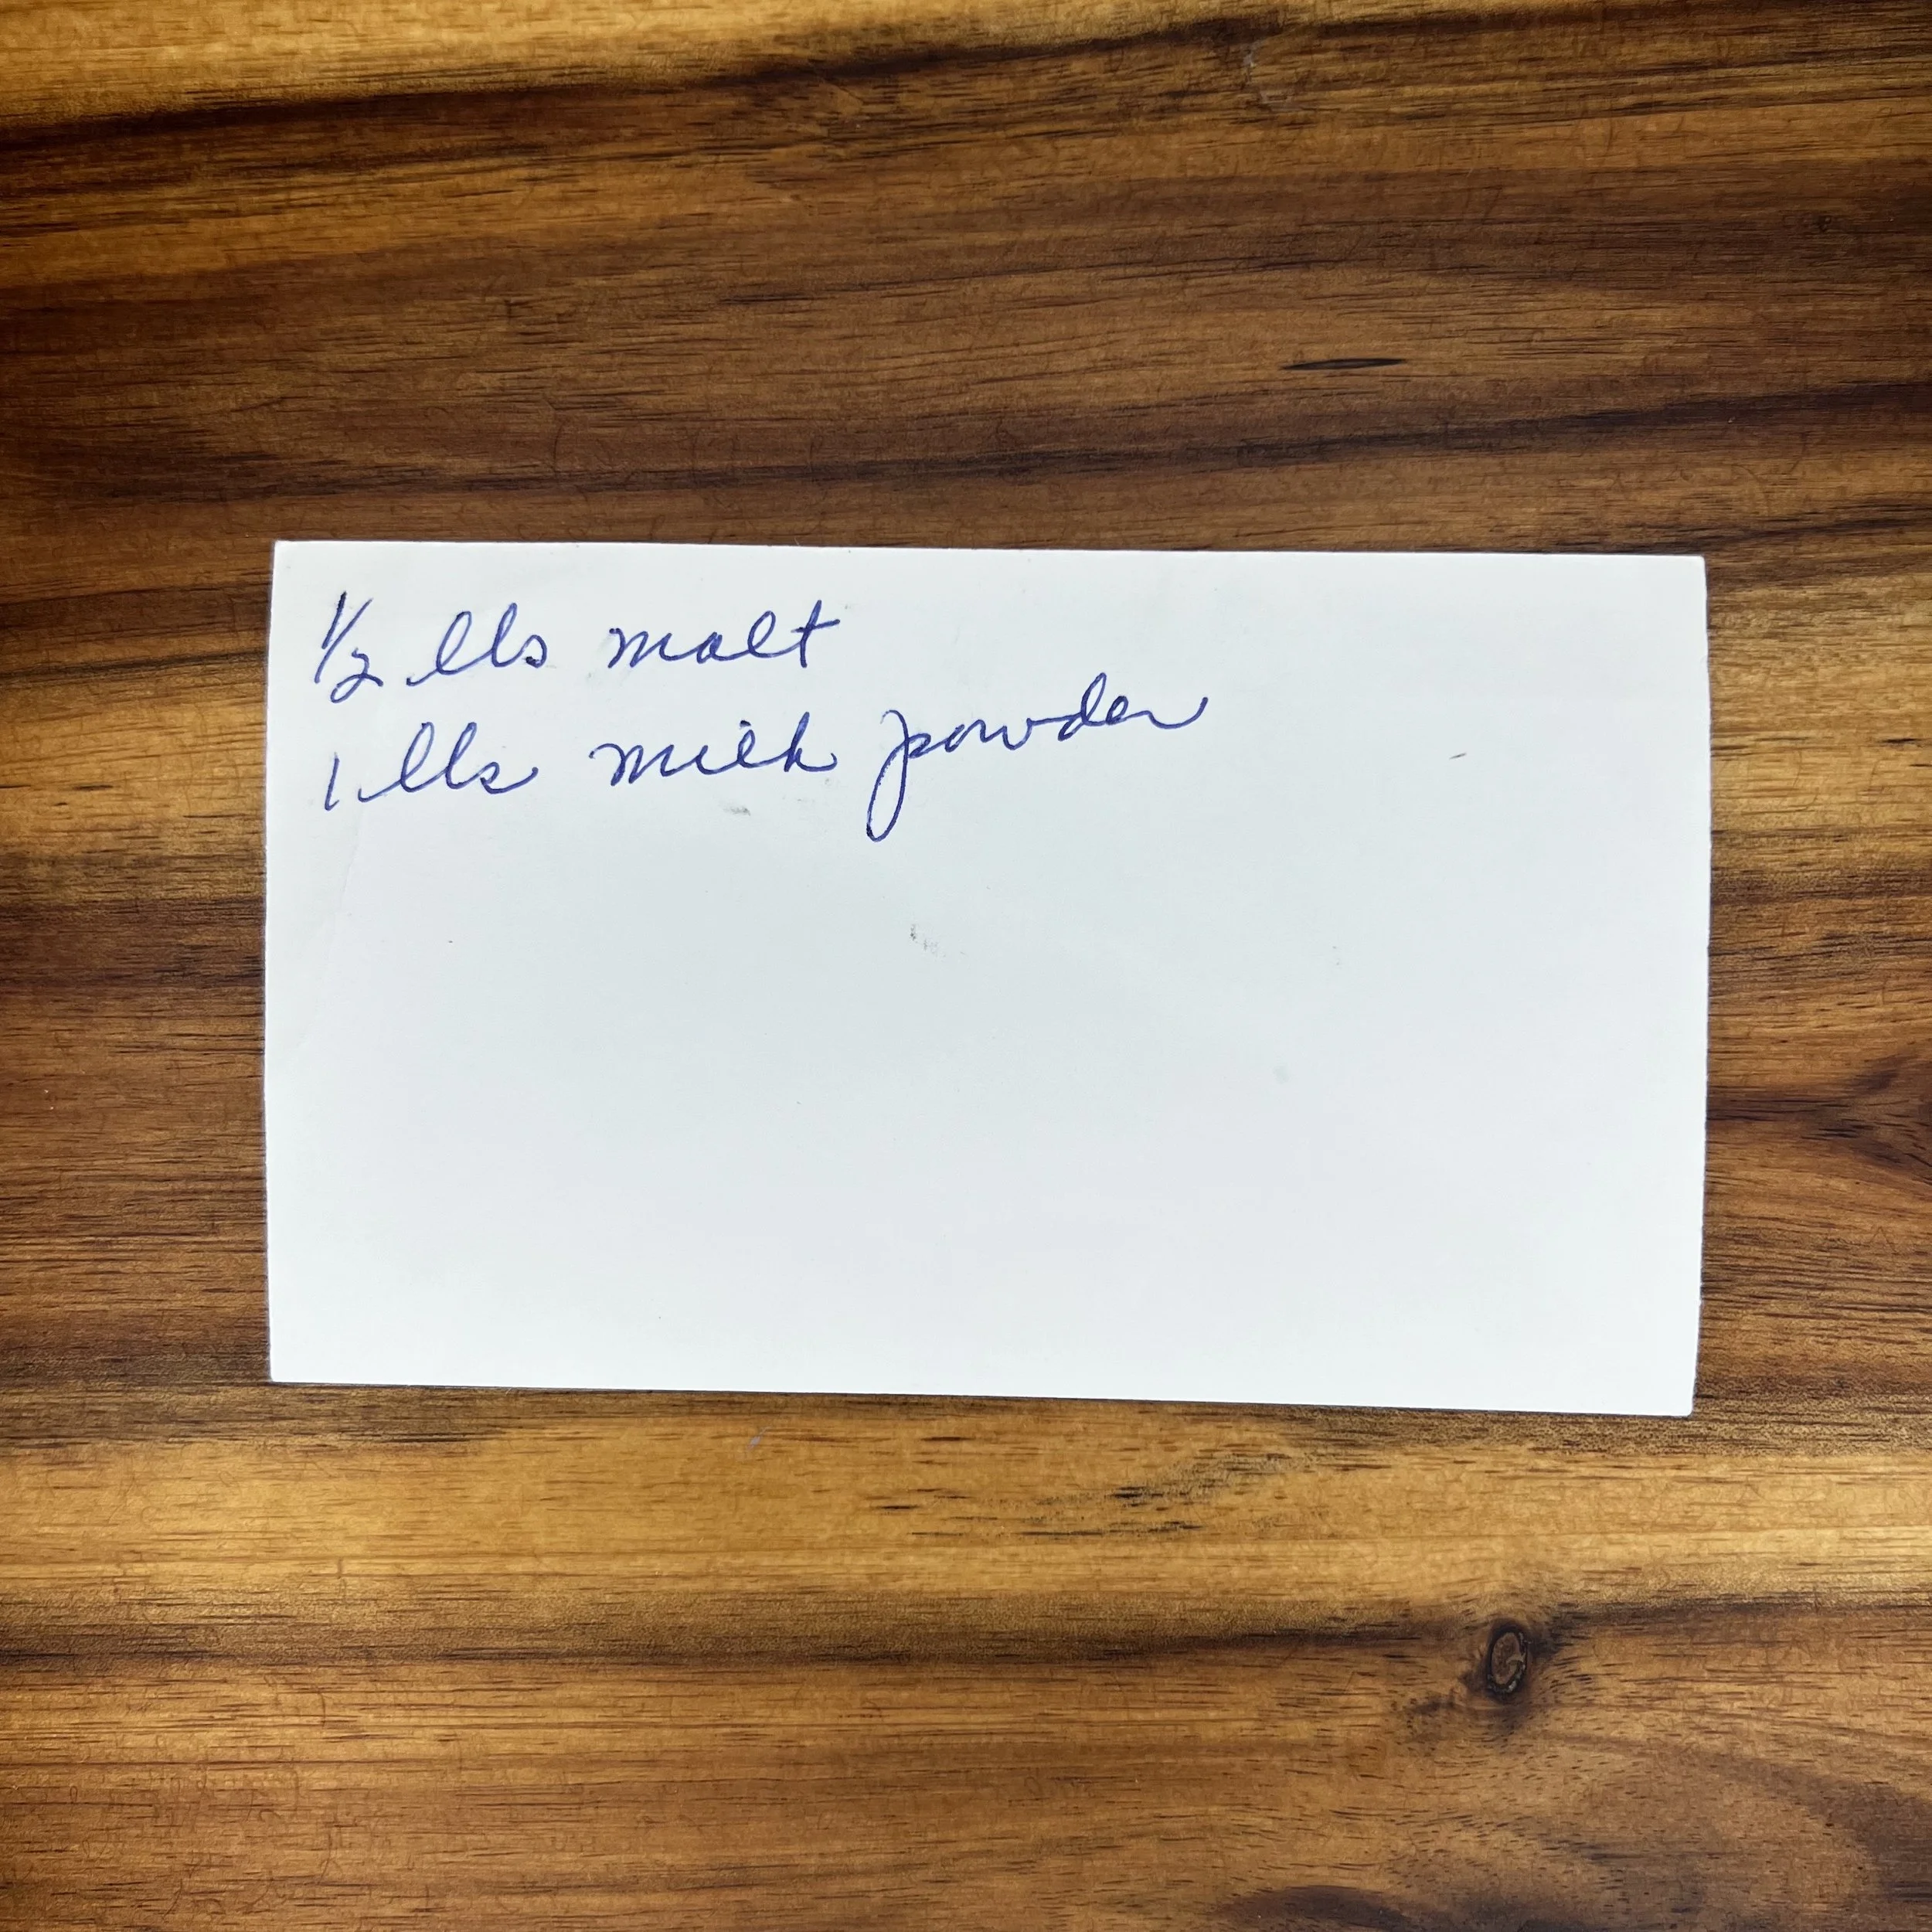 1/2 lbs malt
1 lbs milk powder